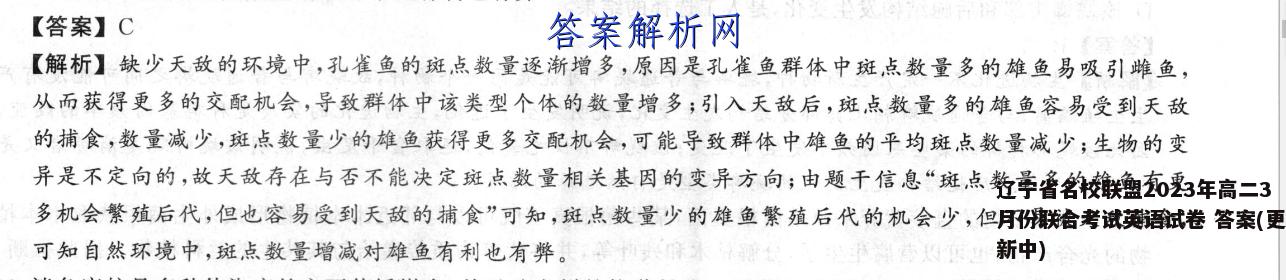 【答案】C
答案解析网
【解析】缺少天敌的环境中,孔雀鱼的斑点数量逐渐增多,原因是孔雀鱼群体中斑点数量多的雄鱼易吸引雌鱼,
从而获得更多的交配机会,导致群体中该类型个体的数量增多;引入天敌后,斑点数量多的雄鱼容易受到天敌
的捕食,数量减少,斑点数量少的雄鱼获得更多交配机会,可能导致群体中雄鱼的平均斑点数量减少;生物的变
异是不定向的,故天敌存在与否不能决定斑点数量相关基因的变异方向;由题干信息“斑点数量多的雄鱼有更
多机会繁殖后代,但也容易受到天敌的捕食”可知,斑点数量少的雄鱼繁殖后代的机会少,但
可知自然环境中,斑点数量增减对雄鱼有利也有弊。
辽宁省名校联盟2023年高二3
月份联合考试英语试卷 答案(更
新中)